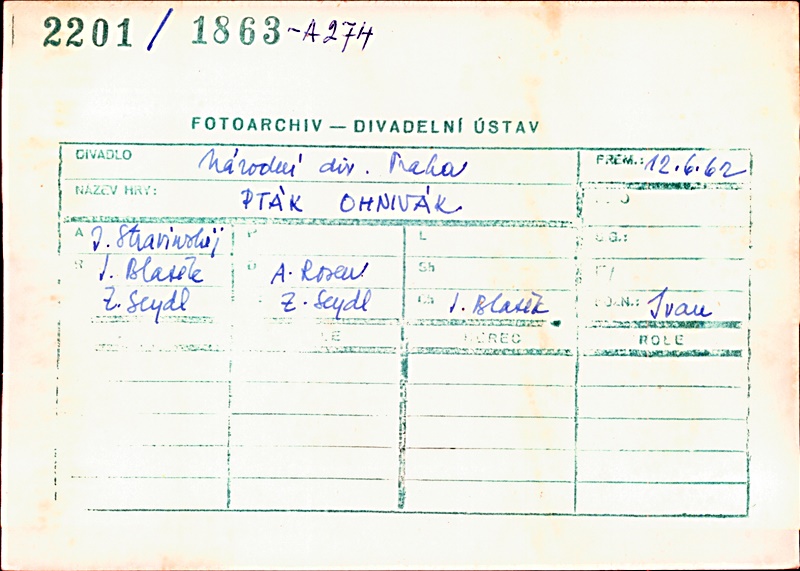 2201 / 1863 -A274
FOTOARCHIV — DIVADELNÍ ÚSTAV
DIVADLO Národní div. Praha PREM.: 12.6.62
NÁZEV HRY: PTÁK OHNIVÁK
A I. Stravinskij P L
R J. Blažek D A. Rosen Sh
Z. Seydl Z. Seydl Ch J. Blažek POZN.: Ivan
HEREC ROLE